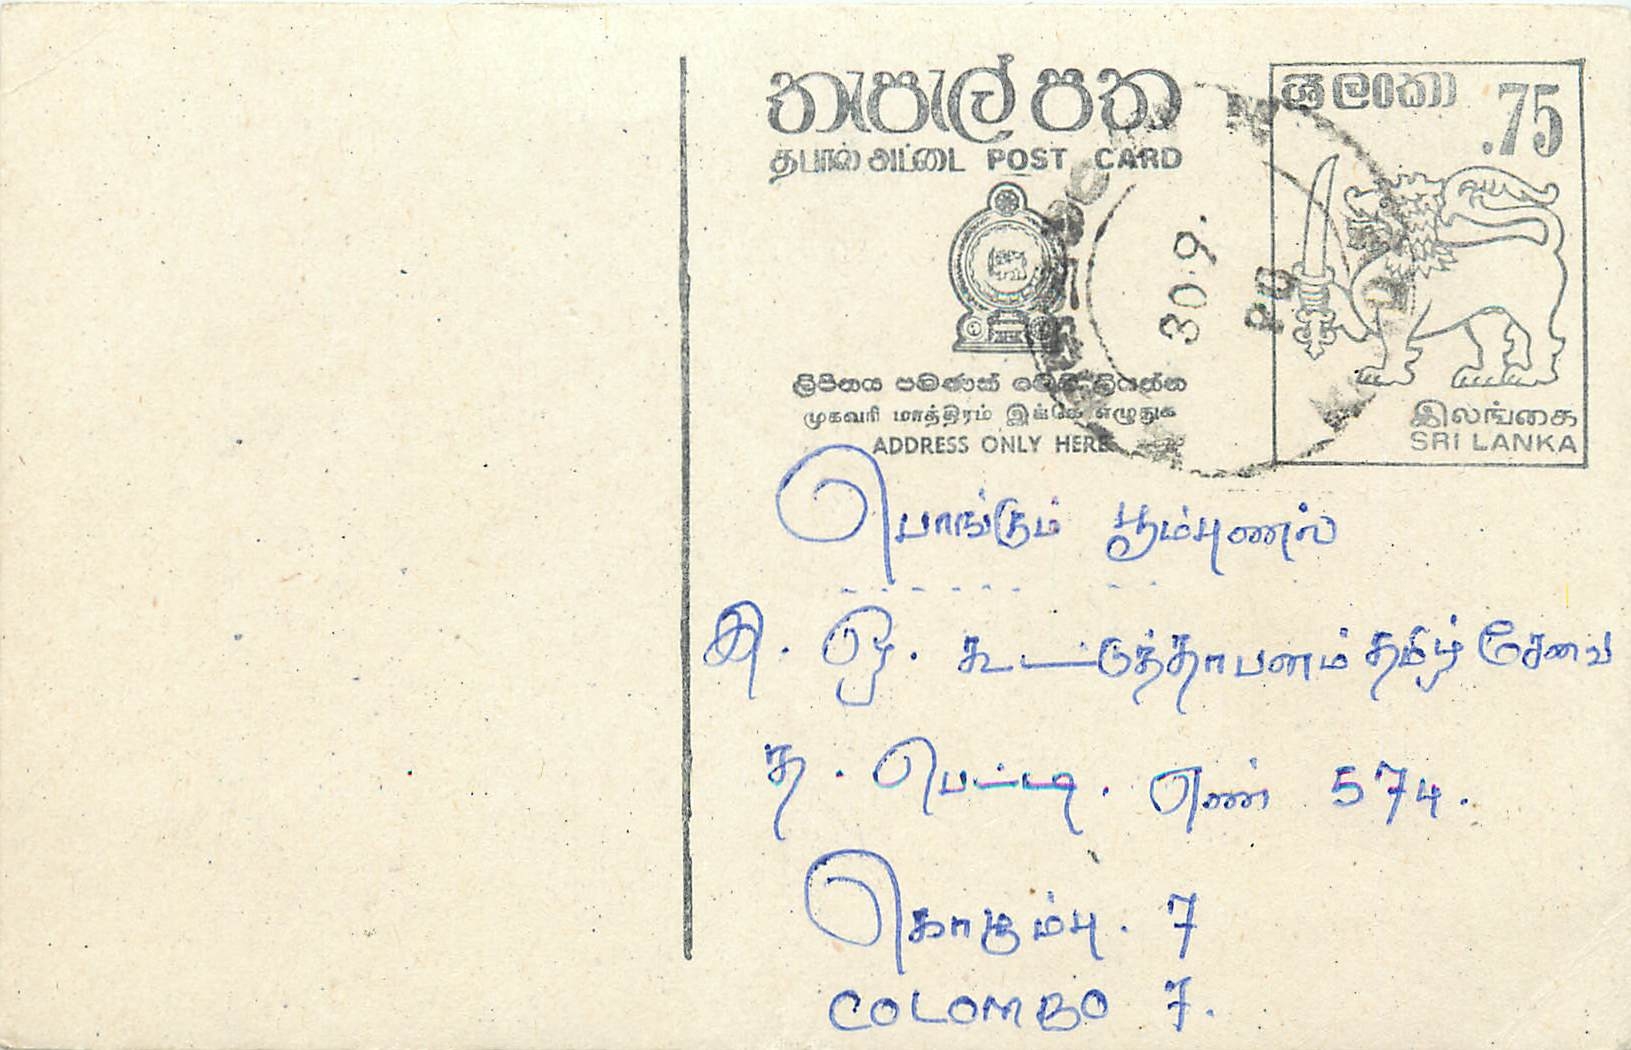 තැපැල් පත
தபால் அட்டை POST CARD
ශ්‍රී ලංකා .75
30.9.
ලිපිනය පමණක් මෙහි ලියන්න
முகவரி மாத்திரம் இங்கே எழுதுக
ADDRESS ONLY HERE
இலங்கை
SRI LANKA
பொங்கும் பூம்புணல்
இ. ஒ. கூட்டுத்தாபனம் தமிழ் சேவை
த. பெட்டி. எண் 574.
கொழும்பு. 7
COLOMBO 7.